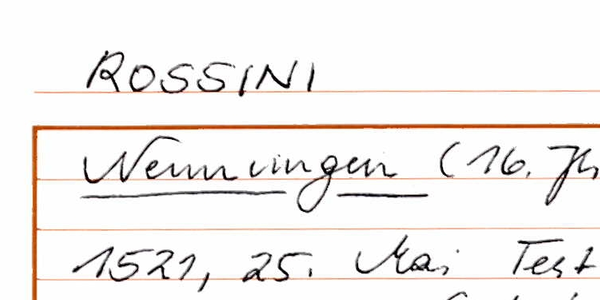 ROSSINI
Nennungen (16. Jh
1521, 25. Mai Test